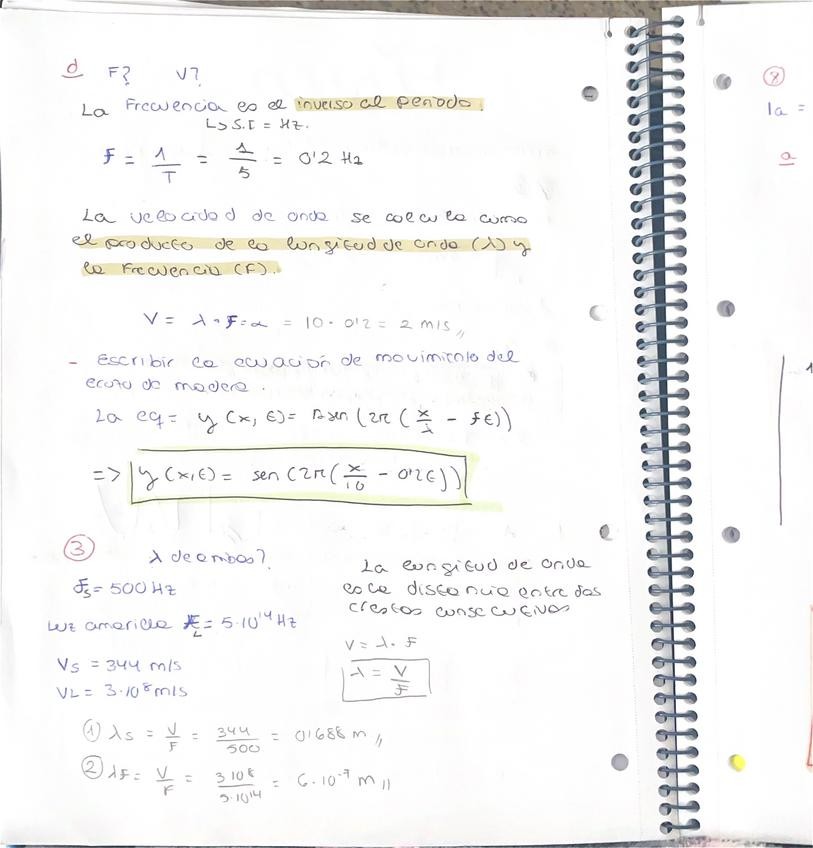 d F? V?
La Frecuencia es el inverso al periodo.
↳ S.I = Hz.
F = 1/T = 1/5 = 0'2 Hz
La velocidad de onda se calcula como
el producto de la longitud de onda (λ) y
la Frecuencia (F).
V = λ · F = = 10 · 0'2 = 2 m/s,,
- Escribir la ecuación de movimiento del
de madera.
La eq = y (x, t) = A sen (2π (x/λ - ft))
=> y (x,t) = sen (2π (x/10 - 0'2t))
③ λ de ambos?
fs = 500 Hz
Luz amarilla FL = 5·10¹⁴ Hz
Vs = 344 m/s
VL = 3·10⁸ m/s
La longitud de onda
es la distancia entre dos
crestas consecutivas
V = λ · F
λ = V/F
① λs = V/F = 344/500 = 0'688 m,,
② λF = V/F = 3·10⁸/5·10¹⁴ = 6·10⁻⁷ m,,
⑧
1a =
a
1